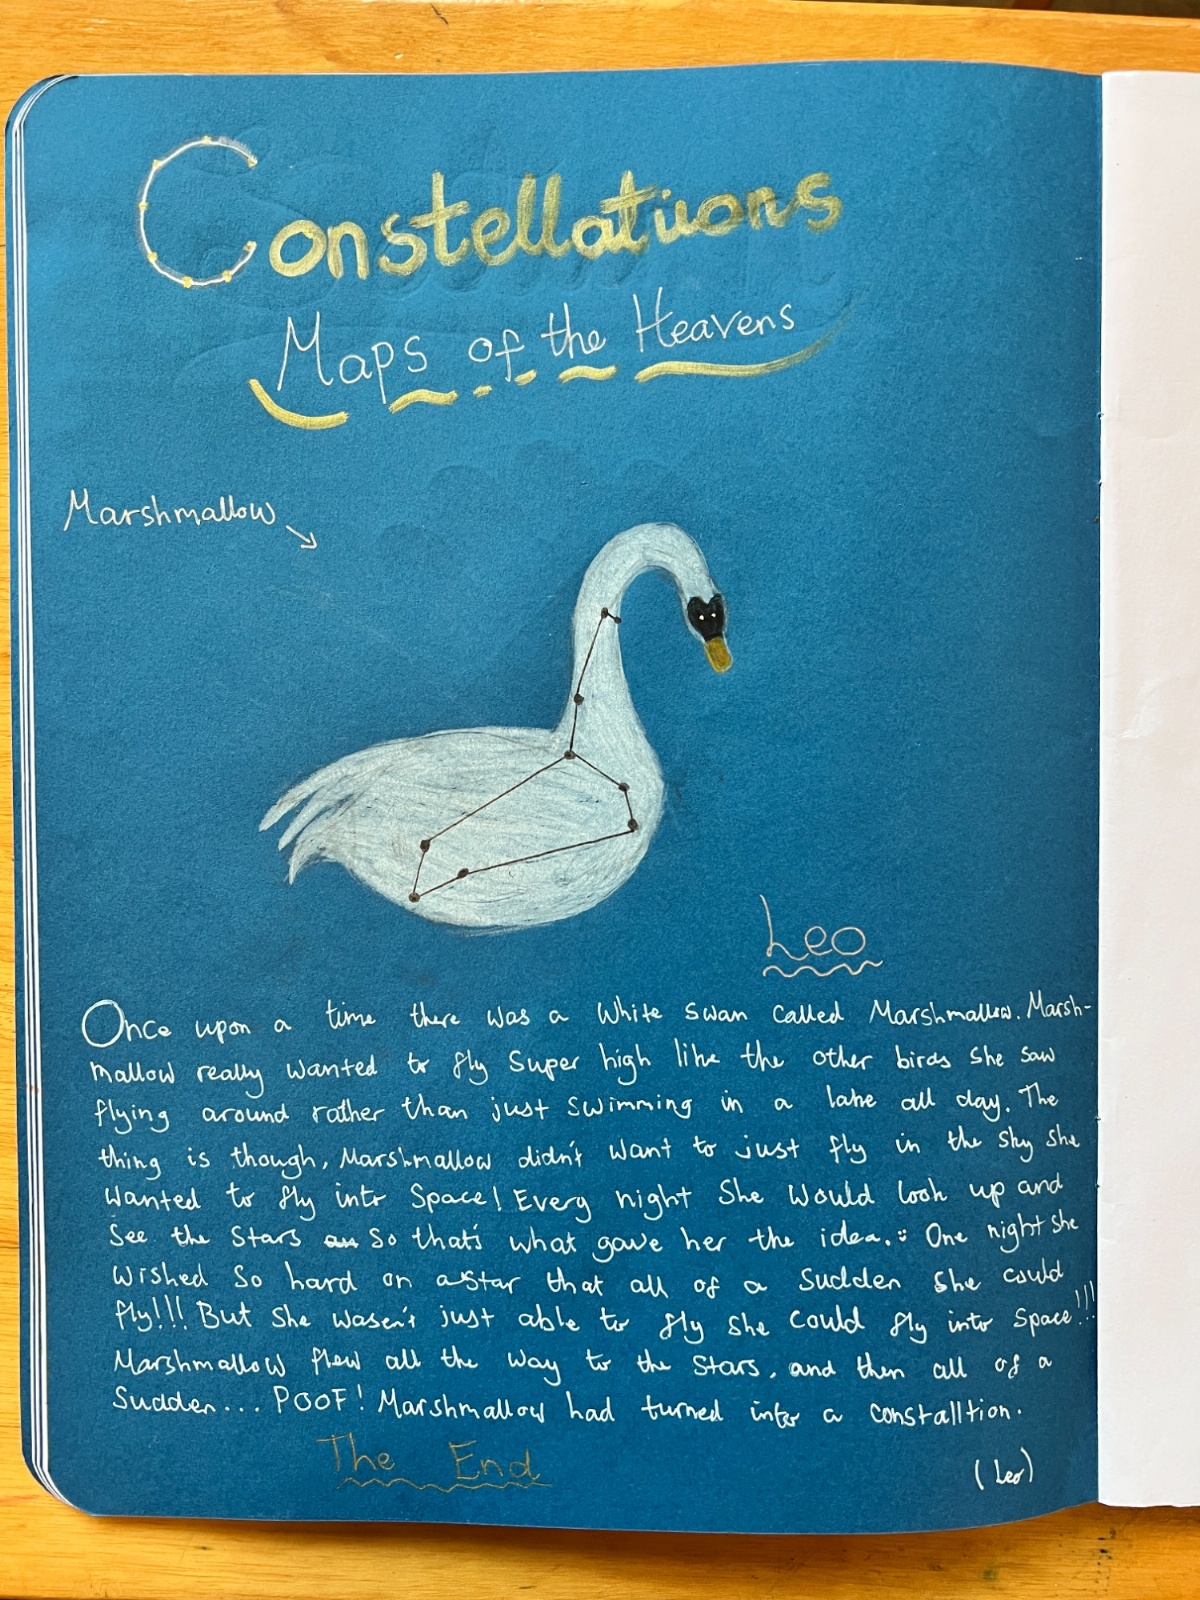 Constellations
Maps of the Heavens
Marshmallow
Leo
Once upon a time there was a white swan called Marshmallow. Marsh-
mallow really wanted to fly super high like the other birds she saw
flying around rather than just swimming in a lake all day. The
thing is though, Marshmallow didn't want to just fly in the sky she
wanted to fly into space! Every night she would look up and
see the stars so that's what gave her the idea. One night she
wished so hard on a star that all of a sudden she could
fly!!! But she wasen't just able to fly she could fly into space!!!
Marshmallow flew all the way to the stars, and then all of a
sudden... POOF! Marshmallow had turned into a constalltion.
The End
(Leo)